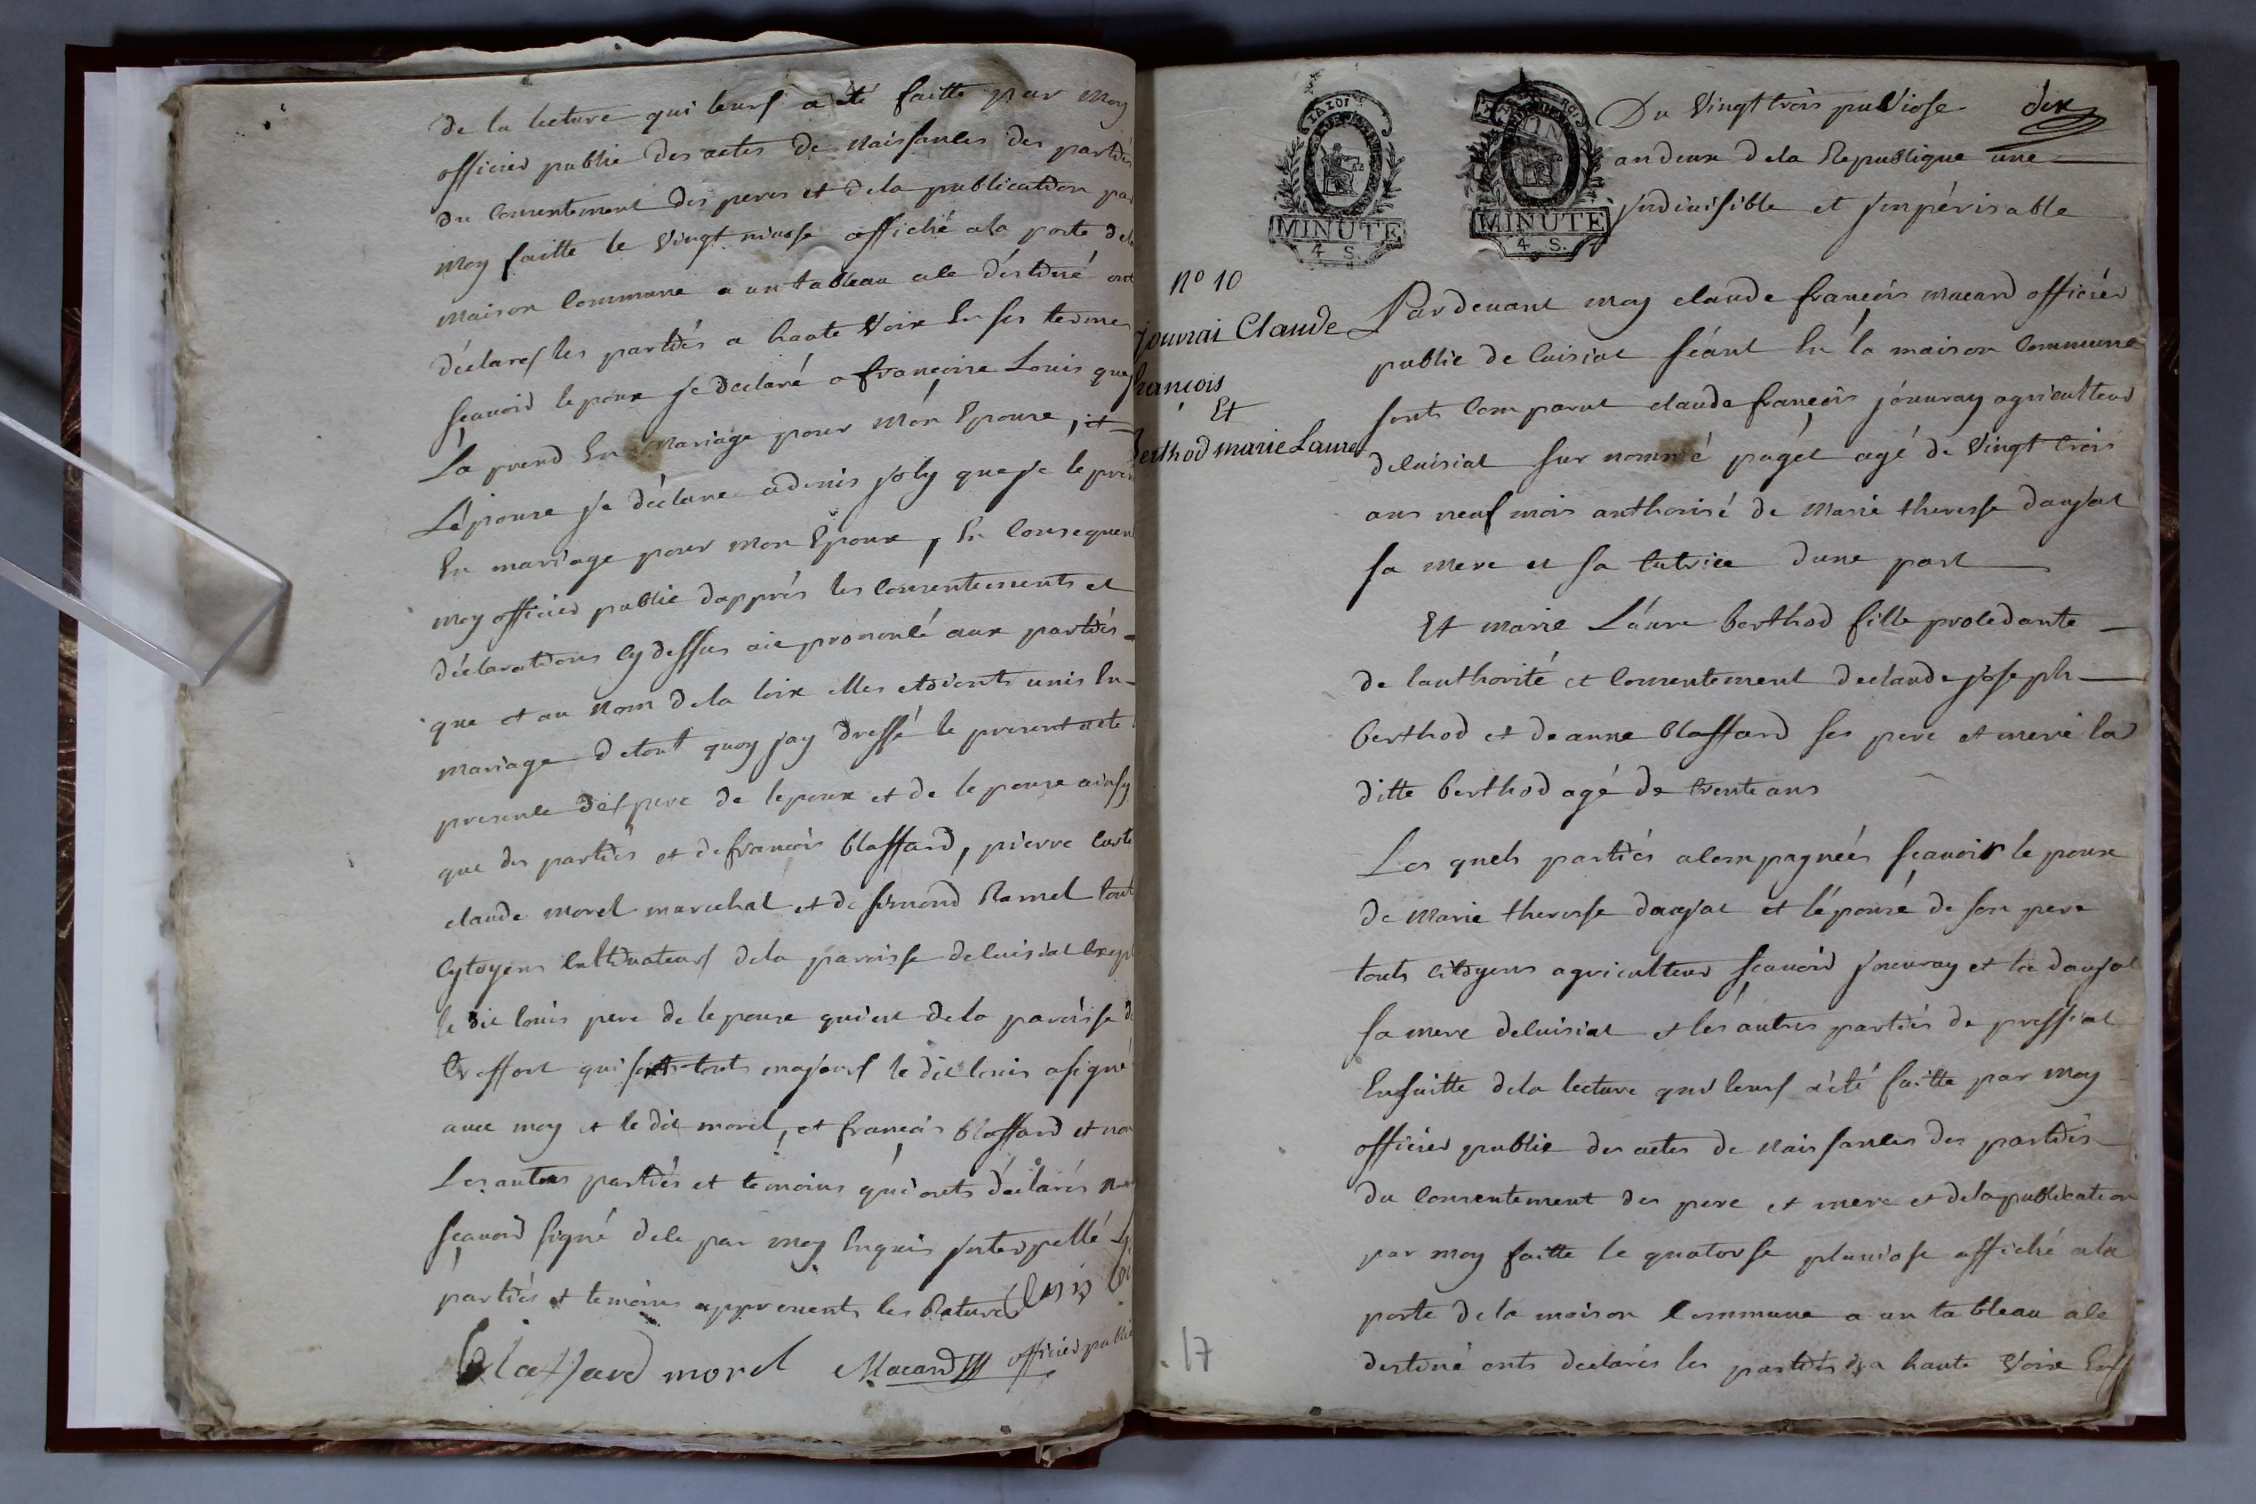 de la lecture qui leurs a eté faitte par moy
officier public des actes de naissances des parties
du consentement des peres et de la publication par
moy faitte le vingt nivose affiché a la porte de la
maison commune a un tableau a le destiné ont
déclares les parties a haute voix en ses termes
scavoir lepoux je declaré a françoise Louis que
La prend en mariage pour mon Epouse, et
L'épouse je déclare a denis joly que je le prend
En mariage pour mon Epoux, En consequen
moy officier public dapprés les consentements et
déclarations cy dessus aie prononcé aux parties
que et au nom de la loix elles etoients unis En
mariage de tout quoy jay dressé le present acte
presence des pere de lepoux et de lepouse ainsy
que des parties et de françois blassard, pierre
claude morel marechal et de simond Ramel tout
Cytoyens Cultivateurs de la paroisse de cuisiat
le dit louis pere de lepouse qui est de la paroisse de
treffort qui sont touts majeurs le dit louis a signé
avec moy et le dit morel, et françois blassard et non
Les autres parties et temoins qui onts déclarés
scavoir signé de le par moy Enquis interpellé
parties et temoins apprennents les Rature Louis
blassard morel Macard officier public
MINUTE
4 S.
MINUTE
4 S.
Du vingt trois pluviose dix
an deux de la Republique une
jndivisible et jmpérisable
No 10
jouvrai Claude
françois
Et
Berthod marie Laure
Pardevant moy claude françois macard officiér
public de cuisiat séant En la maison commune
sonts comparut claude françois jouvray agriculteur
de cuisiat sur nommé paget agé de vingt trois
ans neuf mois authorisé de marie theresse daujat
sa mere et sa tutrice dune part
Et marie Laure berthod fille procedante
de lauthorité et consentement de claude joseph
berthod et de anne blassard ses pere et mere la
ditte berthod agé de trente ans
Les quels partiés acompagnéés scavoir lepoux
de marie theresse daujat et l'épouse de son pere
touts citoyens agriculteur scavoir jouvray et la daujat
sa mere de cuisiat et les autres partiés de pressiat
Ensuitte de la lecture qui leurs a été faitte par moy
officier public des actes de naissances des parties
du consentement des pere et mere et de la publication
par moy faitte le quatorse pluviose affiché a la
porte de la maison commune a un tableau a le
destiné onts declarés les parties a haute voix En
17